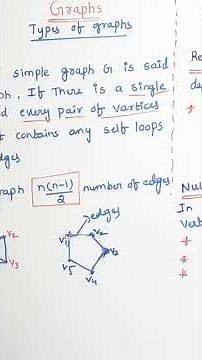 Graphs
Types of graphs
simple graph G is said
ph, If There is a single
d every pair of vartices
t contains any self loops
dges
raph n(n-1)/2 number of edges
edges
V1
V2
V3
V4
V5
V2
V3
Re
de
Nul
In
Vert